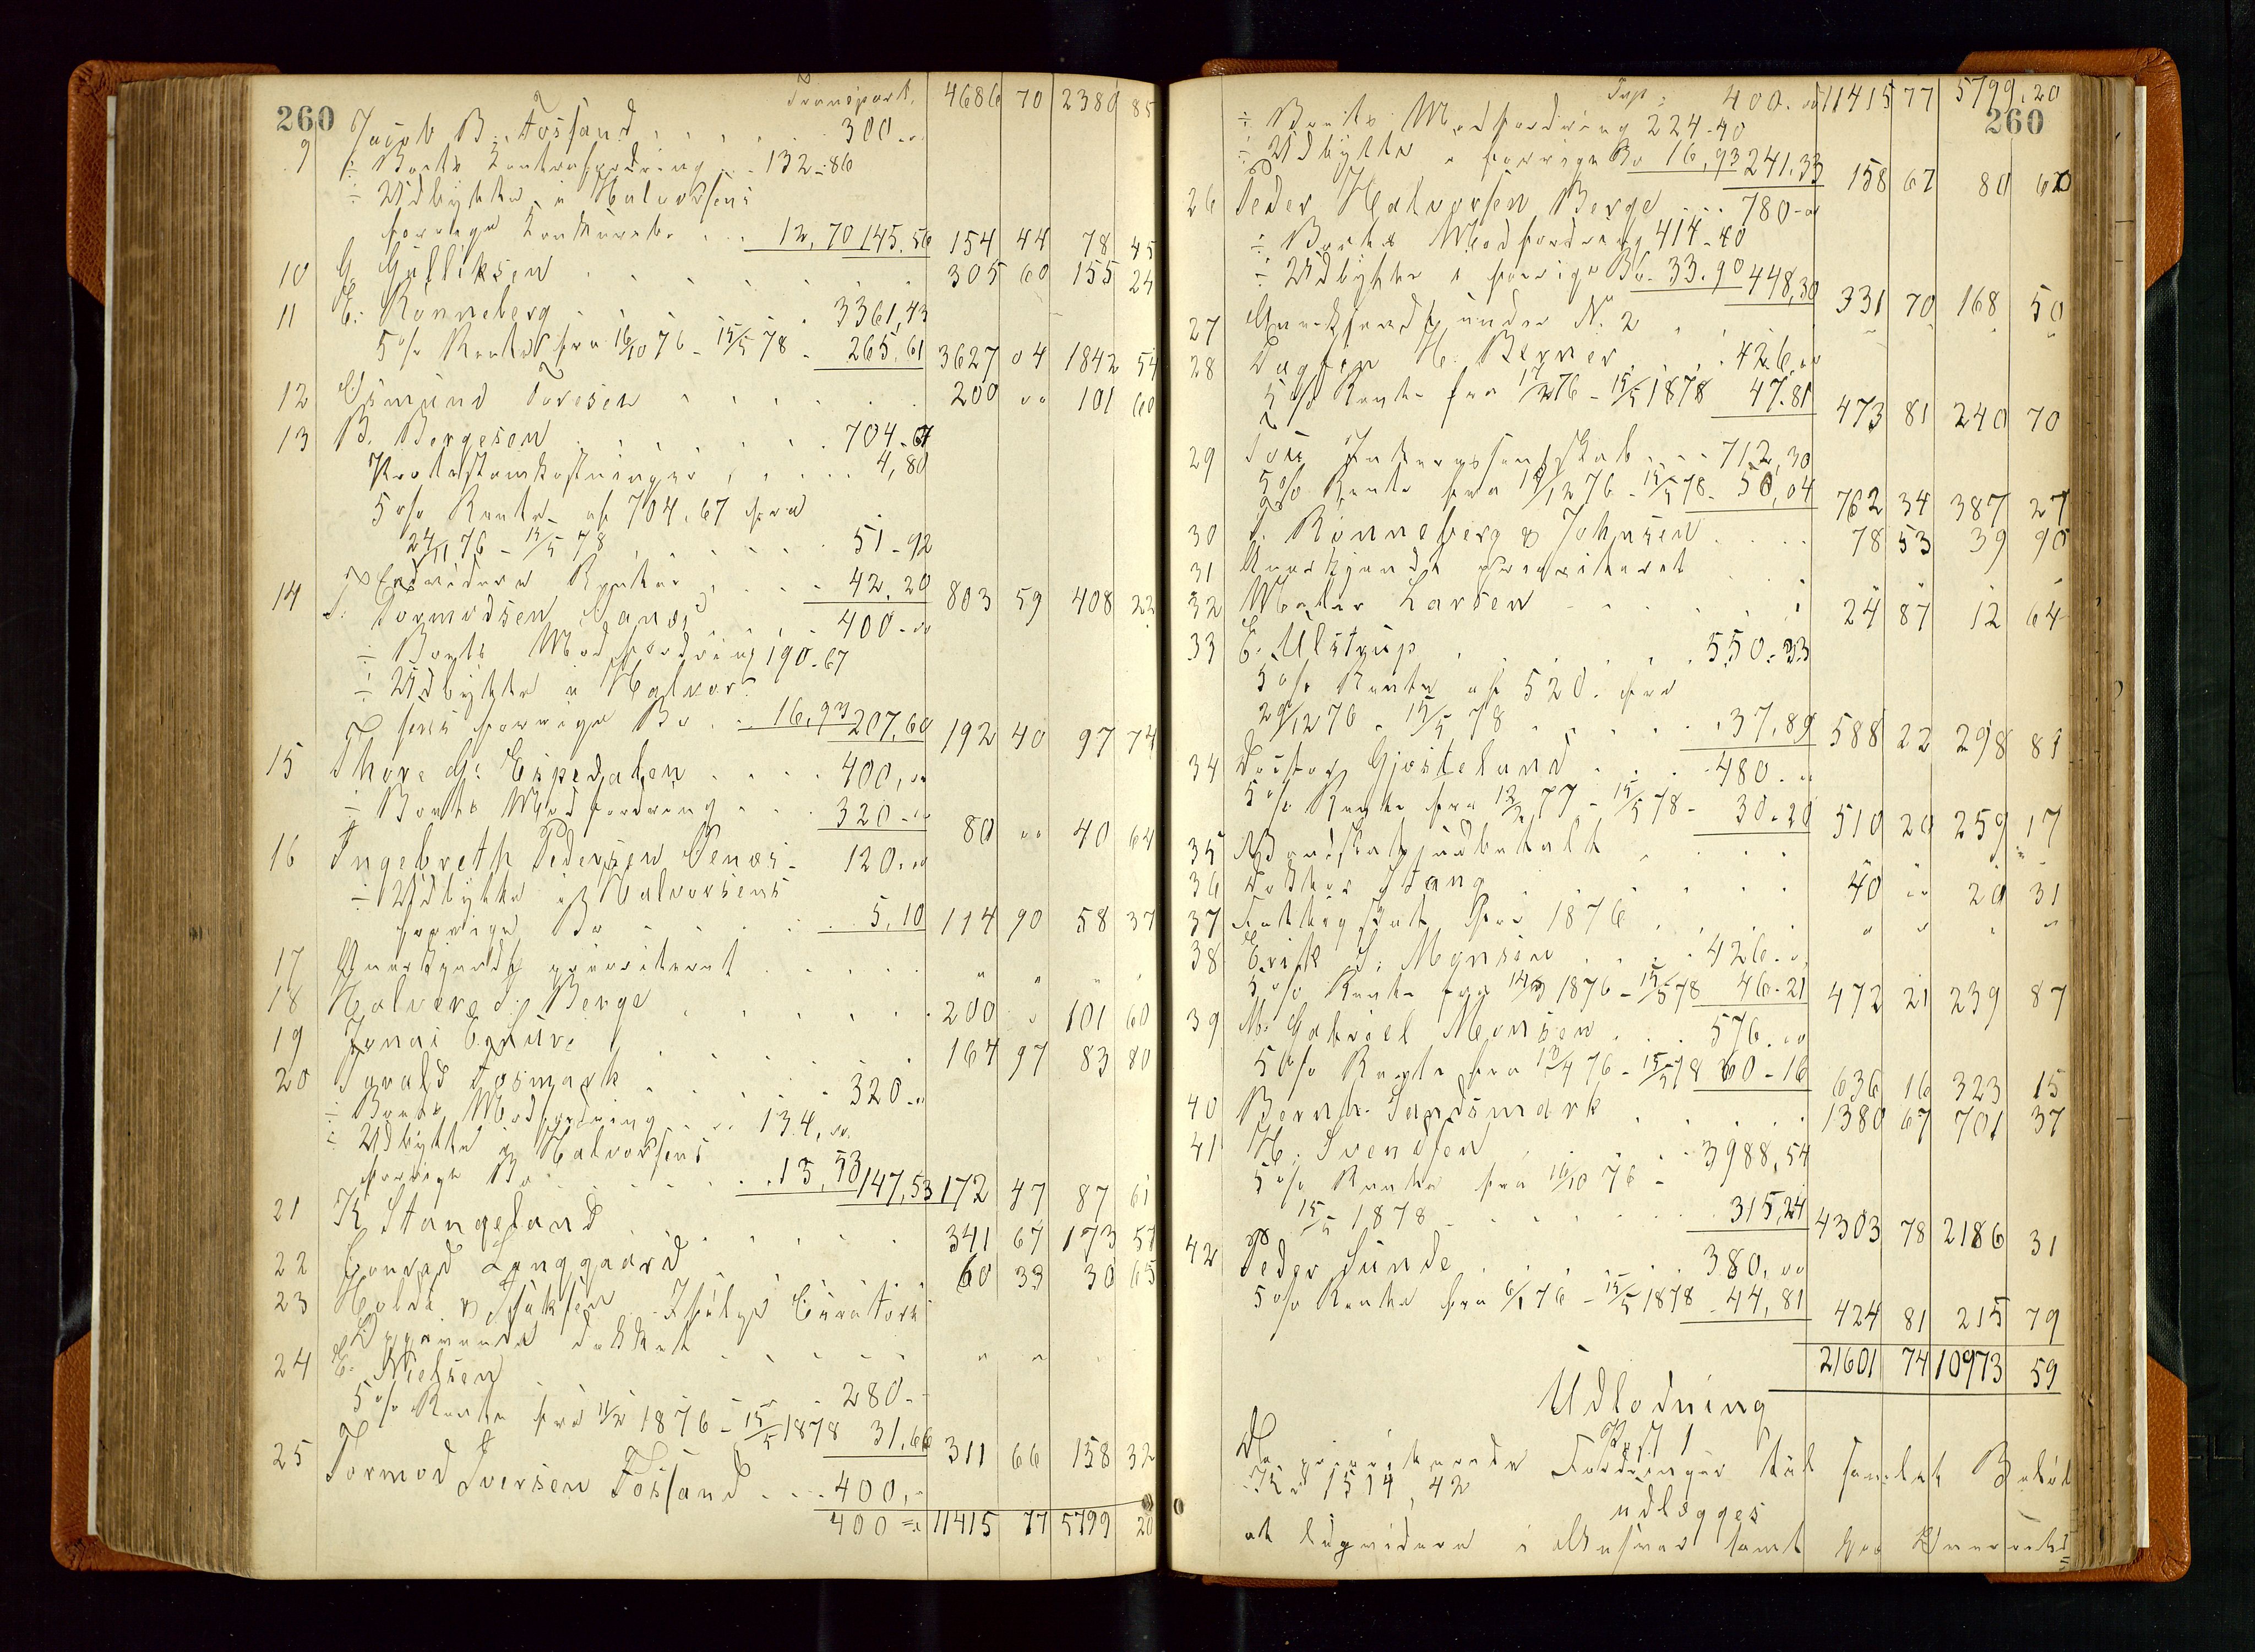 260
Transport. 4686 70 2380 85
9 Jacob B. Fosfand . . . 300 "
÷ Boets Kontrafordring . . 132-86
÷ Udbytte i Halvorsens
forrige Konkursbo . . . 12,70 145.56 154 44 78 45
10 G. Gulliksen . . . 305 60 155 24
11 E. Rønneberg . . . 3361,43
5 o/o Renter fra 16/10 76 - 15/5 78 - 265,61 3627 04 1842 54
12 Osmund Toresen . . . 200 " 101 60
13 B. Bergeson . . . 704-67
Protestomkostninger . . . 4,80
5 o/o Rente af 704,67 fra
24/11 76 - 15/5 78 . . . 51-92
Endvidere Renter . . . 42,20 803 59 408 22
14 T. Tormodsen Sanæs . . . 400-"
÷ Boets Modfordring 190-67
÷ Udbytte i Halvor-
sens forrige Bo . . 16,93 207,60 192 40 97 74
15 Thore G. Espedalen . . . 400,"
÷ Boets Modfordring . . . 320-" 80 " 40 64
16 Ingebreth Pedersen Senæs - 120."
÷ Udbytte i Halvorsens
forrige Bo . . . 5,10 114 90 58 37
17 Anerkjendt prioriteret . . . " " " "
18 Halvor S. Berge . . . 200 " 101 60
19 Jonas . . . 164 97 83 80
20 Tarald Fosmark . . . 320-"
÷ Boets Modfordring . . . 134,"
÷ Udbytte i Halvorsens
forrige Bo . . . 13,53 147,53 172 47 87 61
21 K. Stangeland . . . 341 67 173 57
22 Conrad Langgaard . . . 60 33 30 65
23 Holdt & Isaksen . . . Ifølge Curators
Opgivende dækket . . . " " "
24 E. Nielsen . . . 280-
5 o/o Rente fra 11/2 1876 - 15/5 1878 31,66 311 66 158 32
25 Tormod Iversen Fosfand . . . 400,-
400 = 11415 77 5799 20
Trsp: 400." 11415 77 5799.20
260
÷ Boets Modfordring 224-40
÷ Udbytte i forrige Bo 16,93 241.33 158 67 80 60
26 Peder Halvorsen Berge . . . 780-"
÷ Boets Modfordring 414-40
÷ Udbytte i forrige Bo 33.90 448,30 331 70 168 50
27 Anerkjendt under N. 2 . . . " " " "
28 Dagfin H. Berner . . . 426,"
5 o/o Rente fra 17/2 76 - 15/5 1878 47.81 473 81 240 70
29 Sou Interessentskab . . . 712,30
5 o/o Rente fra 14/12 76 - 15/5 78 - 50,04 762 34 387 27
30 Rønneberg & Johnsen . . . 78 53 39 90
31 Anerkjendt prioriteret . . . " " " "
32 Larsen . . . 24 87 12 64
33 E. Ulstrup . . . 550-33
5 o/o Rente af 520. fra
29/12 76 - 15/5 78 . . . 37,89 588 22 298 81
34 Gjøsteland . . . 480."
5 o/o Rente fra 12/2 77 - 15/5 78 - 30-20 510 20 259 17
35 Brandskat indbetalt . . . " "
36 Doktor Stang . . . 40 " 20 31
37 Fattigskat for 1876 . . . " " " "
38 Erik S. Monsen . . . 426-"
5 o/o Rente fra 14/3 1876 - 15/5 78 46-21 472 21 239 87
39 M. Gabriel Monsen . . . 576."
5 o/o Rente fra 13/4 76 - 15/5 78 60-16 636 16 323 15
40 Bernh. Sandsmark . . . 1380 67 701 37
41 H. Svendsen . . . 3988,54
5 o/o Rente fra 16/10 76 -
15/5 1878 . . . 315,24 4303 78 2186 31
42 Peder Sunde . . . 380,"
5 o/o Rente fra 6/1 76 - 15/5 1878 - 44,81 424 81 215 79
21601 74 10973 59
Udlodning
Post 1
De prioriterede Fordringer til samlet Beløb
Kr 1514,42
udlægges
at liqvidere i Massens samt hos